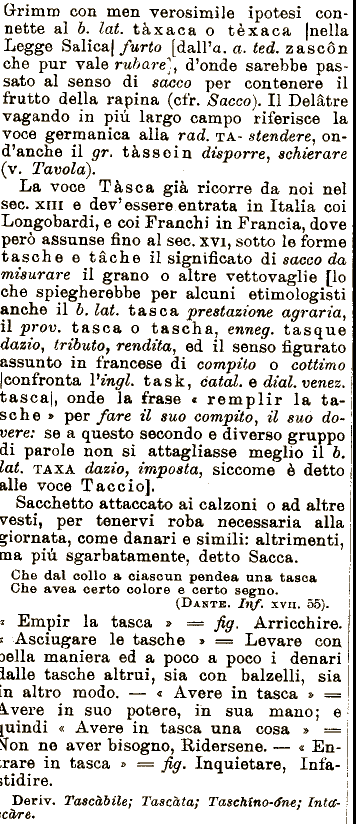 Grimm con men verosimile ipotesi con-
nette al b. lat. tàxaca o tèxaca [nella
Legge Salica] furto [dall'a. a. ted. zascôn
che pur vale rubare], d'onde sarebbe pas-
sato al senso di sacco per contenere il
frutto della rapina (cfr. Sacco). Il Delâtre
vagando in piú largo campo riferisce la
voce germanica alla rad. TA- stendere, on-
d'anche il gr. tàssein disporre, schierare
(v. Tavola).
La voce Tàsca già ricorre da noi nel
sec. XIII e dev'essere entrata in Italia coi
Longobardi, e coi Franchi in Francia, dove
però assunse fino al sec. XVI, sotto le forme
tasche e tâche il significato di sacco da
misurare il grano o altre vettovaglie [lo
che spiegherebbe per alcuni etimologisti
anche il b. lat. tasca prestazione agraria,
il prov. tasca o tascha, enneg. tasque
dazio, tributo, rendita, ed il senso figurato
assunto in francese di compito o cottimo
[confronta l'ingl. task, catal. e dial. venez.
tasca], onde la frase « remplir la ta-
sche » per fare il suo compito, il suo do-
vere: se a questo secondo e diverso gruppo
di parole non si attagliasse meglio il b.
lat. TAXA dazio, imposta, siccome è detto
alle voce Taccio].
Sacchetto attaccato ai calzoni o ad altre
vesti, per tenervi roba necessaria alla
giornata, come danari e simili: altrimenti,
ma piú sgarbatamente, detto Sacca.
Che dal collo a ciascun pendea una tasca
Che avea certo colore e certo segno.
(DANTE. Inf. XVII. 55).
« Empir la tasca » = fig. Arricchire.
« Asciugare le tasche » = Levare con
bella maniera ed a poco a poco i denari
dalle tasche altrui, sia con balzelli, sia
in altro modo. — « Avere in tasca » =
Avere in suo potere, in sua mano; e
quindi « Avere in tasca una cosa » =
Non ne aver bisogno, Ridersene. — « En-
trare in tasca » = fig. Inquietare, Infa-
stidire.
Deriv. Tascàbile; Tascàta; Taschíno-óne; Inta-
scàre.